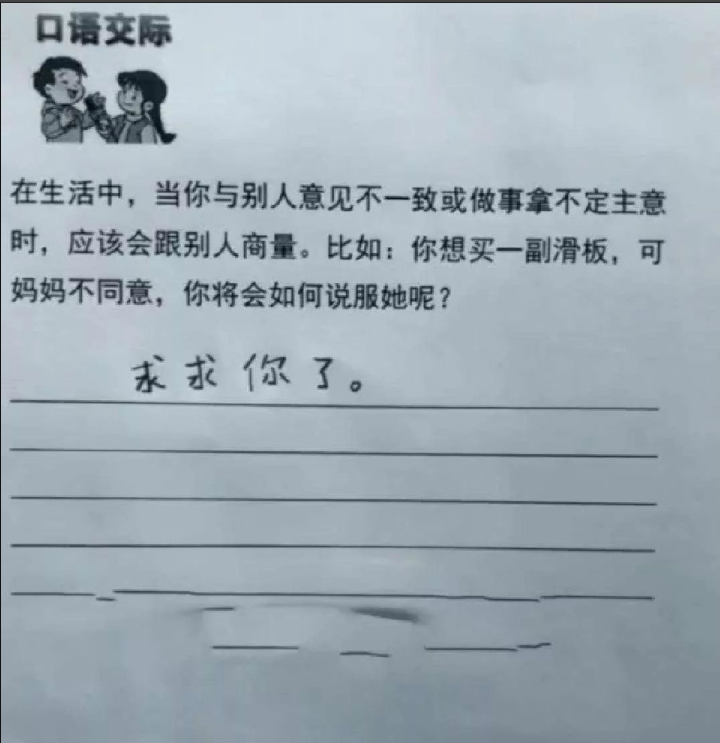 口语交际
在生活中，当你与别人意见不一致或做事拿不定主意
时，应该会跟别人商量。比如：你想买一副滑板，可
妈妈不同意，你将会如何说服她呢？
求求你了。